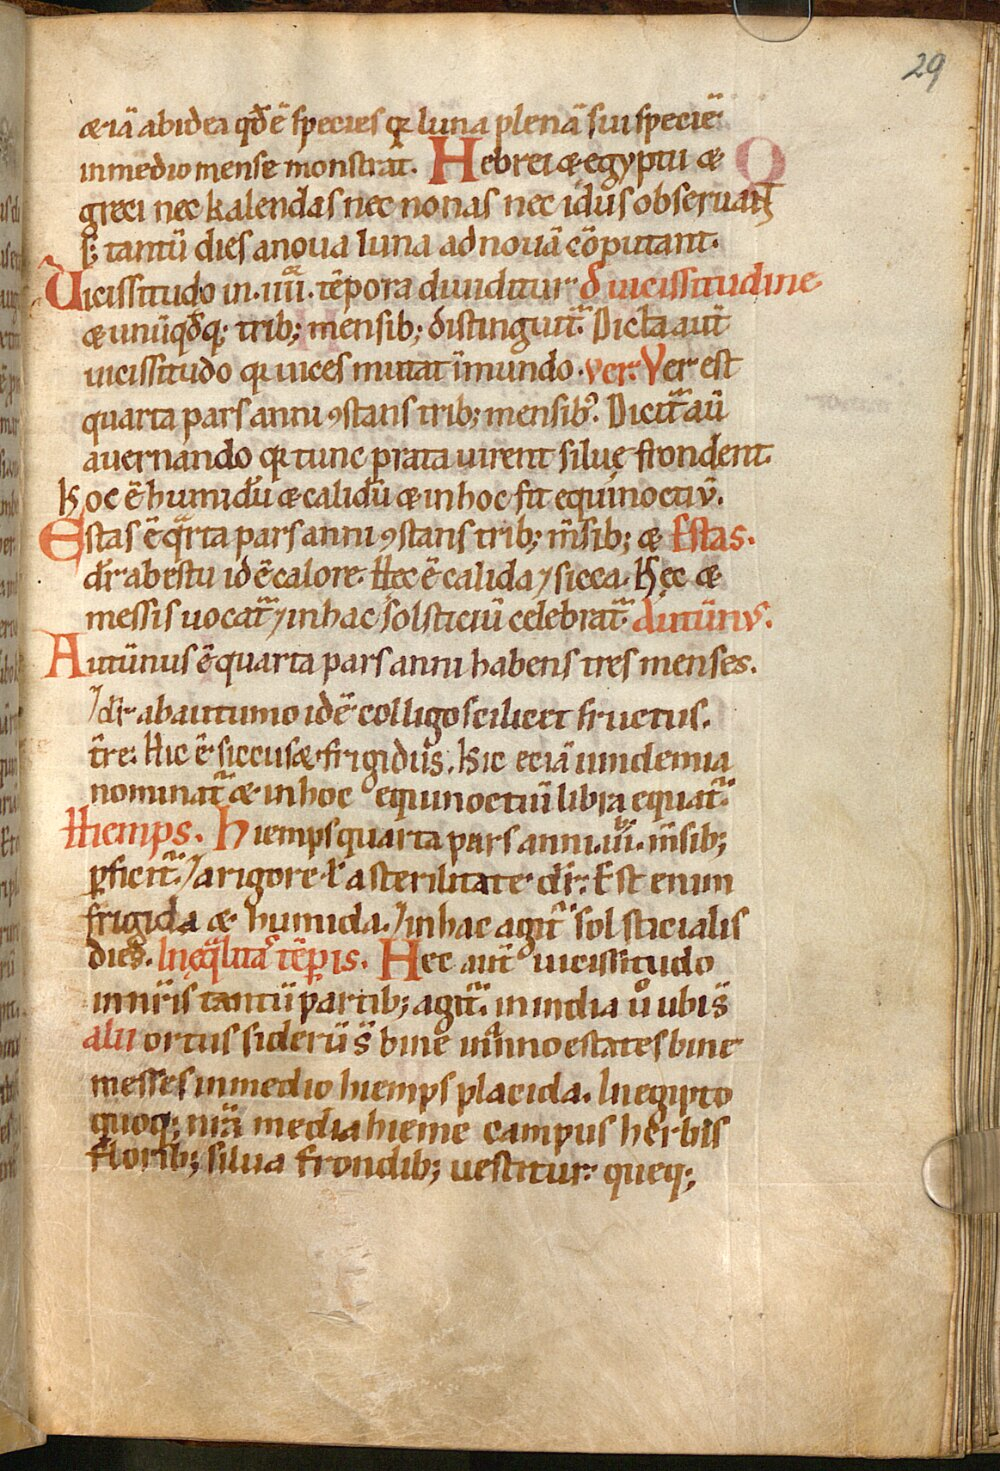 29
& iā ab idea qđ ē species qꝛ luna plenā sui speciē
in medio mense monstrat̄. Hebrei & egyptii &
greci nec kalendas nec nonas nec idus obseruant
s; tantū dies a noua luna ad nouā cōputant.
Vicissitudo in .iiii. tēpora diuiditur đ uicissitudine
& unūqđq; trib; mensib; distinguit̄. Dicta aut̄
uicissitudo qꝛ uices mutat ī mundo. ver. Ver est
quarta pars anni ꝯstans trib; mensibꝰ. Dicit̄ aū
a uernando qꝛ tunc prata uirent siluę frondent.
hoc ē humidū & calidū & in hoc fit equinoctiū.
Estas ē qrta pars anni ꝯstans trib; m̄sib; & Estas.
dr̄ ab estu id ē calore. Hec ē calida ⁊ sicca. hęc &
messis uocat̄ ⁊ in hac solsticiū celebrat̄. Autūnꝰ.
Autūnus ē quarta pars anni habens tres menses.
⁊ dr̄ ab autumo id ē colligo scilicet fructus.
t̄re. Hic ē siccus & frigidus. hic eciā uindemia
nominat̄ & in hoc equinoctiū libra equat̄.
Hiemps. hiemps quarta pars anni .iii. m̄sib;
ꝑficit̄. ⁊ a rigore ł a sterilitate dr̄. Est enim
frigida & humida. ⁊ in hac agit̄ solsticialis
dies. Inęqlitas tēpis. Hec aut̄ uicissitudo
in nr̄is tantū partib; agit̄. in india u̅o ubi s̄
alii ortus siderū s̄ bine in anno estates bine
messes in medio hiemps placida. In egipto
quoq; niā media hieme campus herbis
florib; silua frondib; uestitur. queq;